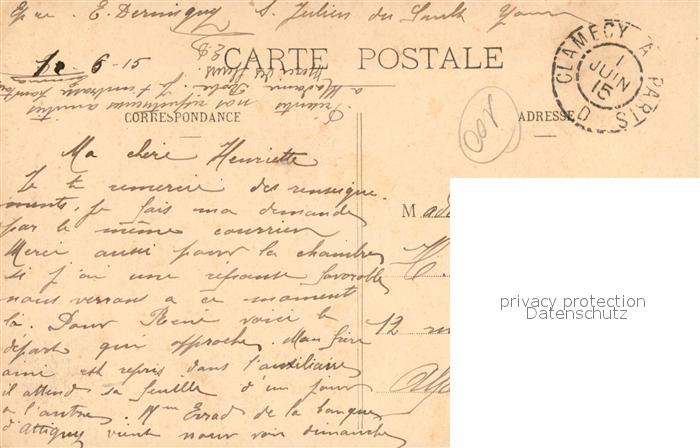 E. Dernigny S. Julien du Sault Yonne
1e - 6 - 15
CARTE POSTALE
CLAMECY A PARIS
1
JUIN
15
D
Présentes nos
à Madame
Merci des fleurs.
CORRESPONDANCE
ADRESSE
Ma chère Henriette
Je te remercie des renseigne-
ments, je fais ma demande
par le même courrier
Merci aussi pour la chambre
si j'ai une réponse favorable
nous verrons à ce moment
là. Pour René voici le
départ qui approche. Mon frère
ami est repris dans l'auxiliaire
il attend sa feuille d'un jour
à l'autre. Mme de la banque
d'Attigny vient nous voir dimanche
Mada
12
privacy protection
Datenschutz